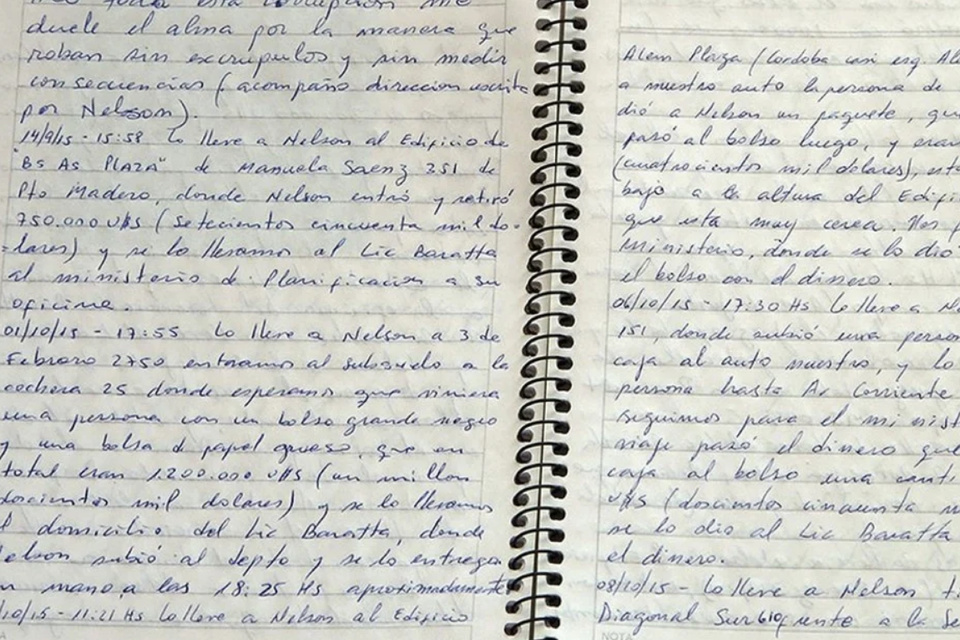 toda esta corrupcion me
duele el alma por la manera que
roban sin excrupulos y sin medir
consecuencias (acompaño direccion escrita
por Nelson).
14/9/15 - 15:58 Lo lleve a Nelson al Edificio de
"BS AS PLAZA" de Manuela Saenz 351 de
Pto Madero, donde Nelson entró y retiró
750.000 U$S (setecientos cincuenta mil do-
lares) y se lo llevamos al Lic Baratta
al ministerio de Planificacion a su
oficina.
01/10/15 - 17:55 Lo lleve a Nelson a 3 de
Febrero 2750 entramos al subsuelo a la
cochera 25 donde esperamos que viniera
una persona con un bolso grande negro
y una bolsa de papel grueso, que en
total eran 1.200.000 U$S (un millon
doscientos mil dolares) y se lo llevamos
l domicilio del Lic Baratta, donde
elson subió al depto y se lo entrega
n mano a las 18:25 Hs aproximadamente
/10/15 - 11:21 Hs Lo lleve a Nelson al Edificio
Alem Plaza (Cordoba casi esq Al
a muestro auto la persona de
dió a Nelson un paquete, qu
pasó al bolso luego, y eran
(cuatrocientos mil dolares), est
bajo a la altura del Edifi
que esta muy cerca. Nos
Ministerio, donde se lo dio
el bolso con el dinero.
06/10/15 - 17:30 Hs Lo lleve a N
151, donde subió una person
caja al auto nuestro, y lo
persona hasta Av Corriente
seguimos para el minist
viaje pasó el dinero que
caja al bolso una canti
U$S (doscientos cincuenta m
se lo dio al Lic Baratta
el dinero.
08/10/15 - Lo lleve a Nelson
Diagonal Sur 610 frente a la Se
NOTA